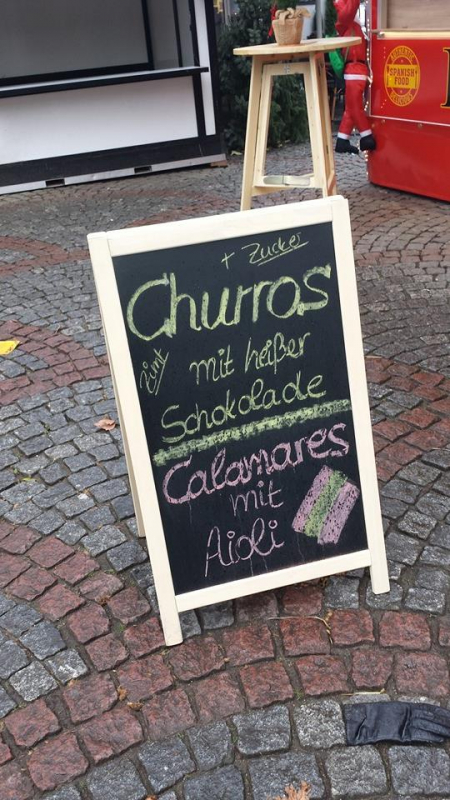 AUTHENTIC
SPANISH
FOOD
+ Zucker
Churros
Zimt
mit heißer
Schokolade
Calamares
mit
Aioli